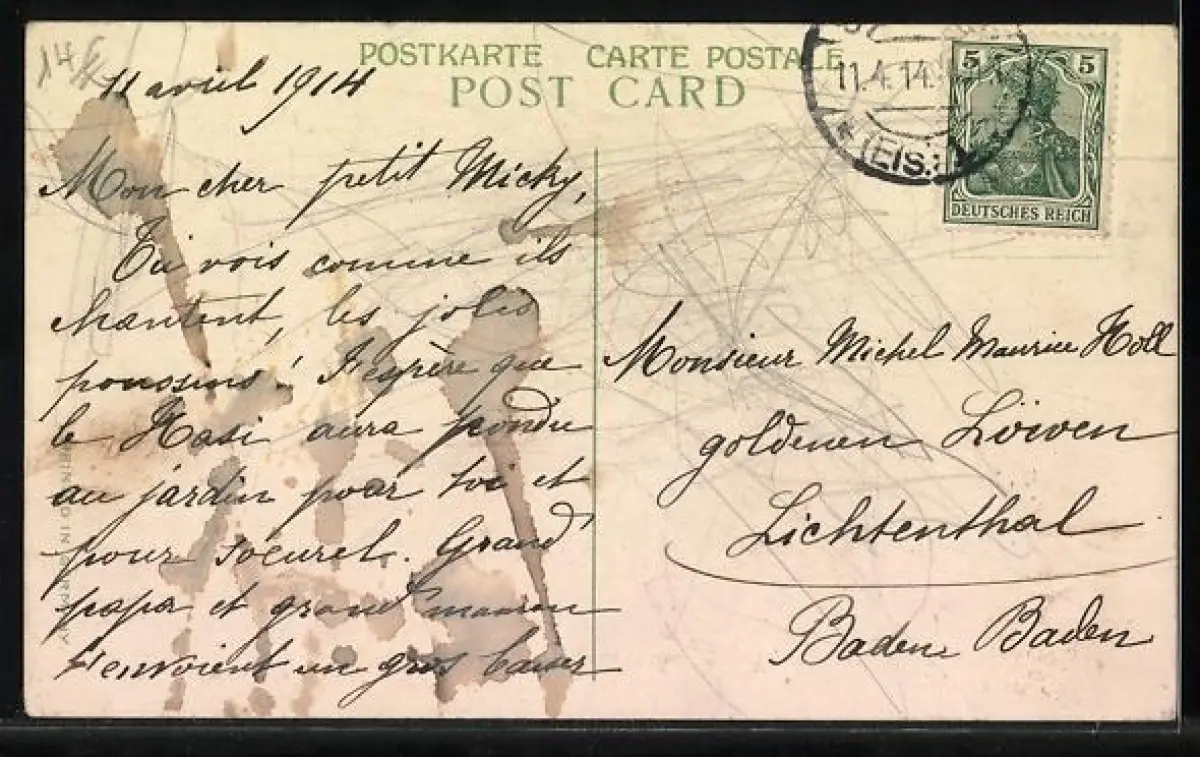 14
POSTKARTE CARTE POSTALE
POST CARD
11 avril 1914
Mon cher petit Micky,
Tu vois comme ils
chantent, les jolis
poussins! J'espère que
le Hasi aura pondu
au jardin pour toi et
pour soeurel. Grand
papa et grand maman
t'envoient un gros baiser
11.4.14.
(EIS.)
5 5
DEUTSCHES REICH
Monsieur Michel Maurice Koll
goldenen Löwen
Lichtenthal
Baden Baden